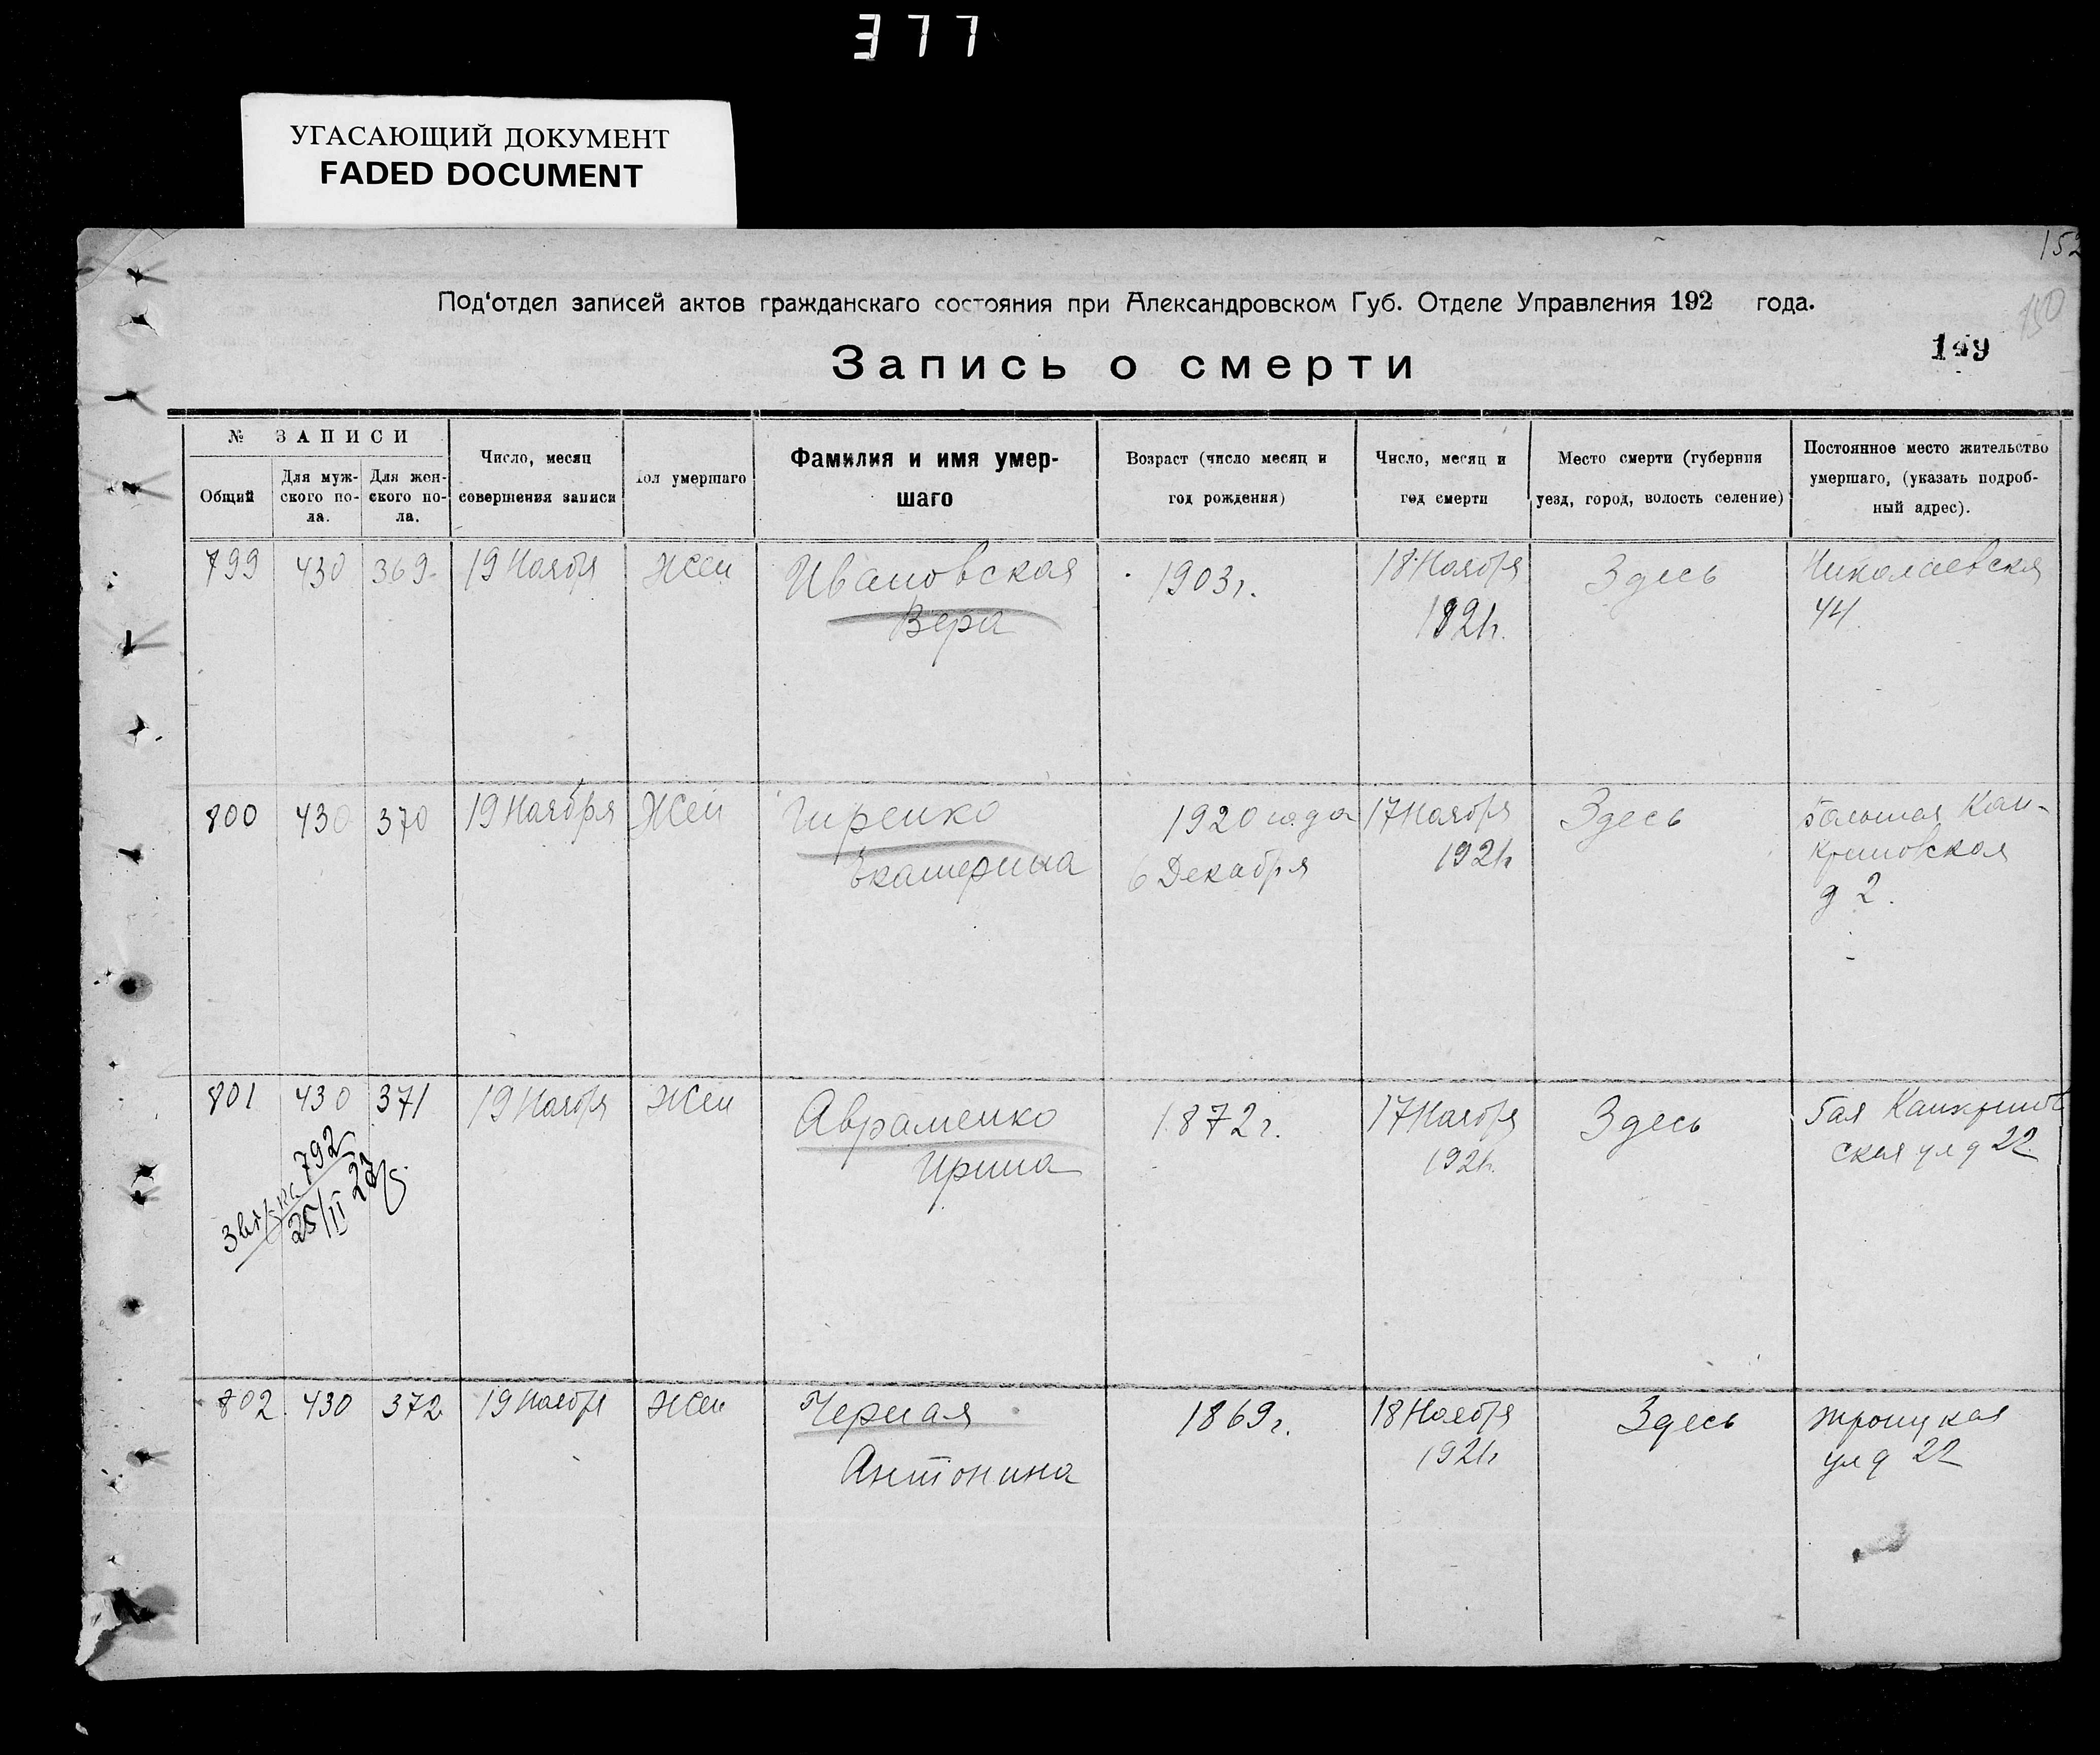 377
УГАСАЮЩИЙ ДОКУМЕНТ
FADED DOCUMENT
152
150
Под'отдел записей актов гражданскаго состояния при Александровском Губ. Отделе Управления 192 года.
149
Запись о смерти
№ ЗАПИСИ
Общий
Для муж-
ского по-
ла.
Для жен-
ского по-
ла.
Число, месяц
совершения записи
Пол умершаго
Фамилия и имя умер-
шаго
Возраст (число месяц и
год рождения)
Число, месяц и
год смерти
Место смерти (губерния
уезд, город, волость селение)
Постоянное место жительство
умершаго, (указать подроб-
ный адрес).
799 430 369 19 Ноября Жен Ивановская 1903г. 18 Ноября Здесь Николаевская
Вера 1921г. 44
800 430 370 19 Ноября Жен Гиренко 1920 года 17 Ноября Здесь Большая Кан-
Екатерина 6 Декабря 1921г криновская
д 2.
801 430 371 19 Ноября Жен Авраменко 1872г. 17 Ноября Здесь бая Канкринов
Ирина 1921г. ская ул д 22
792
25/II 22
802 430 372 19 Ноября Жен Черная 1869г. 18 Ноября Здесь троицкая
Антонина 1921г ул д 22